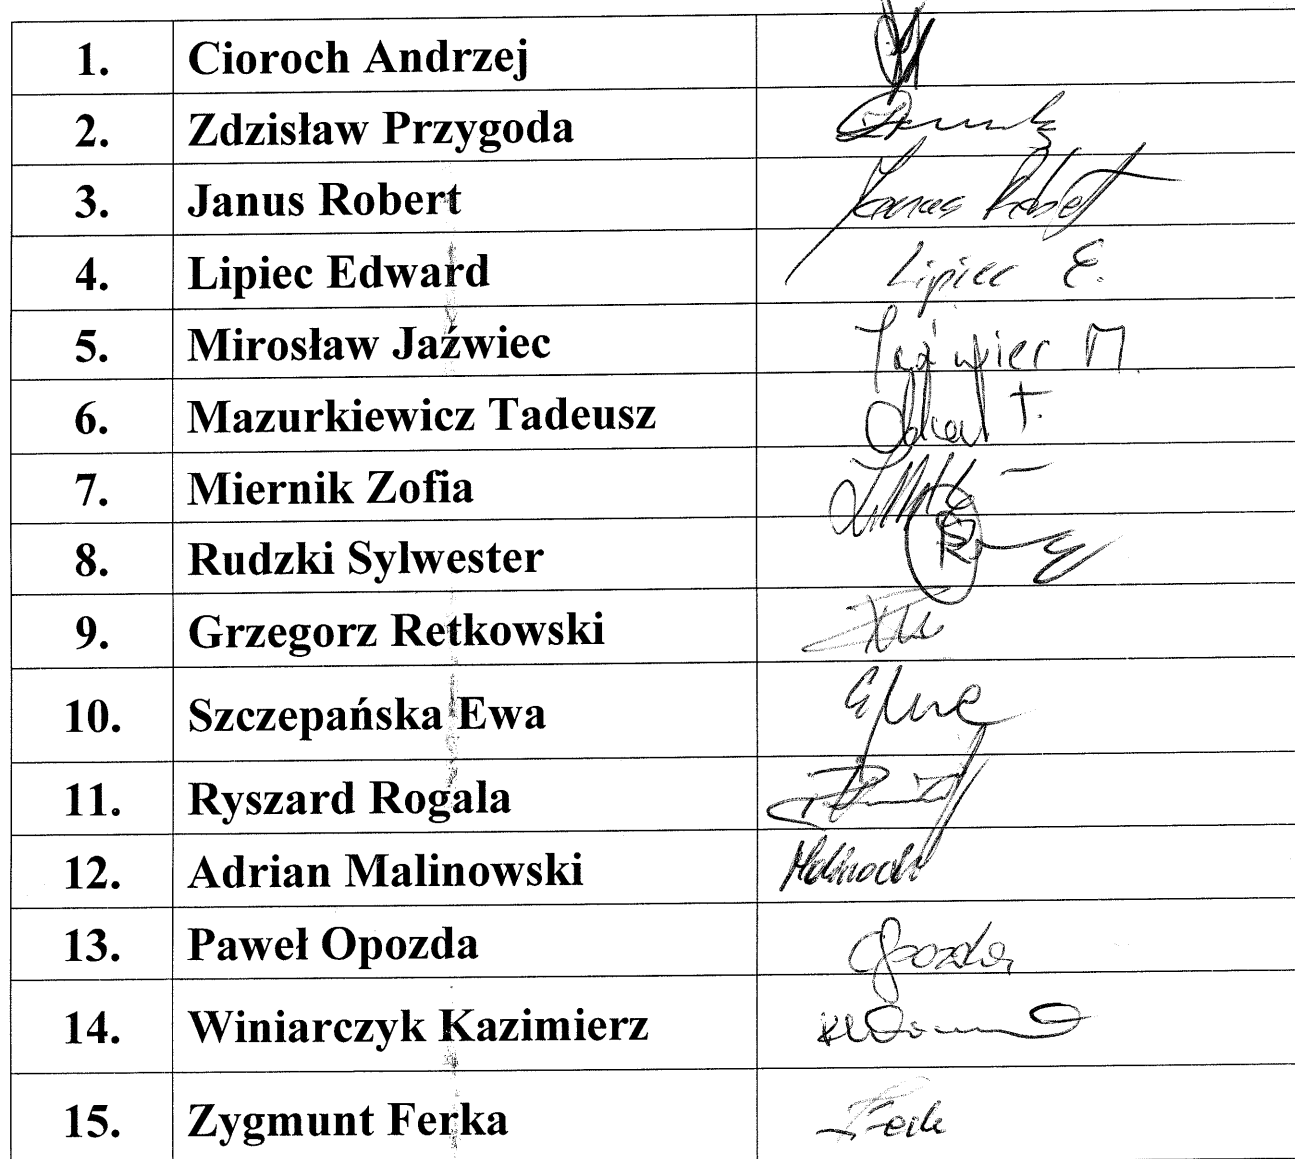 1. Cioroch Andrzej
2. Zdzisław Przygoda
3. Janus Robert Janus Robert
4. Lipiec Edward Lipiec E.
5. Mirosław Jaźwiec Jaźwiec M.
6. Mazurkiewicz Tadeusz T.
7. Miernik Zofia
8. Rudzki Sylwester
9. Grzegorz Retkowski
10. Szczepańska Ewa
11. Ryszard Rogala
12. Adrian Malinowski
13. Paweł Opozda Opozda
14. Winiarczyk Kazimierz
15. Zygmunt Ferka